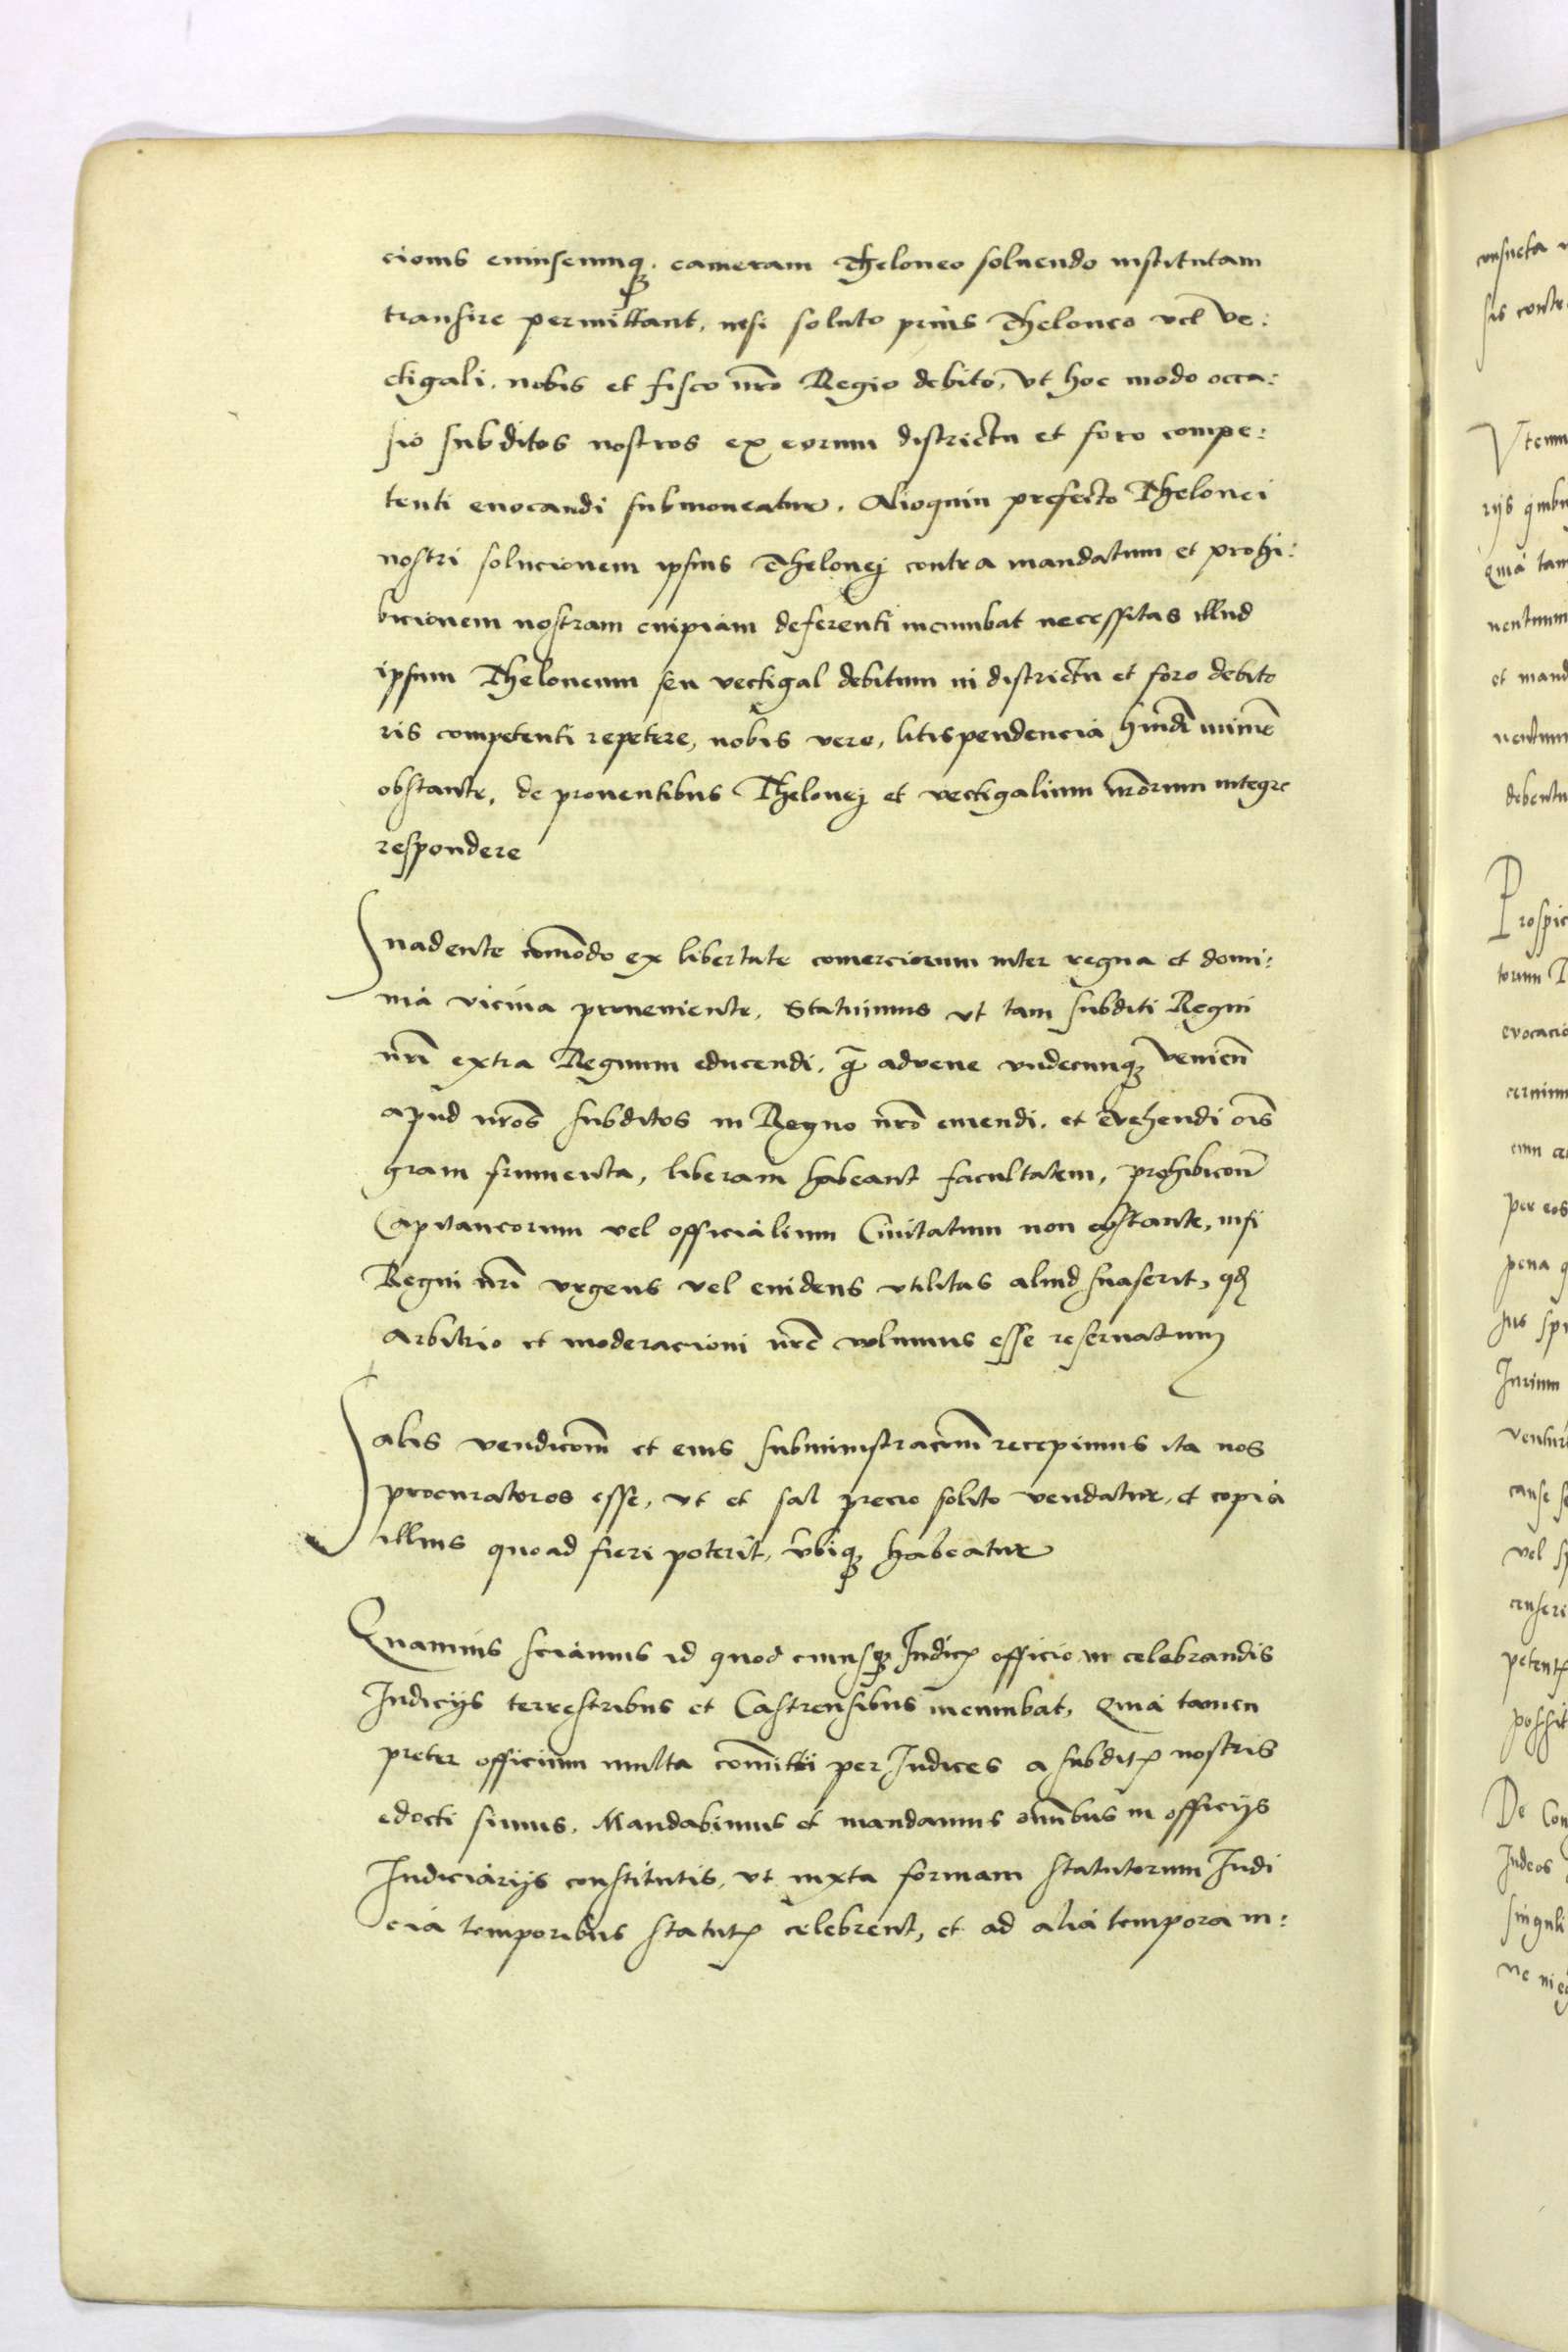 cionis cuiuscunq. cameram Theloneo soluendo institutam
transire permittant, nisi soluto prius Theloneo vel ve:
ctigali, nobis et fisco nro Regio debito, vt hoc modo occa:
sio subditos nostros ex eorum districtu et foro compe:
tenti euocandi submoueatur. Alioquin prefecto Thelonei
nostri solucionem ipsius Thelonej contra mandatum et prohi:
bicionem nostram cuipiam deferenti incumbat necessitas illud
ipsum Theloneum seu vectigal debitum in districtu et foro debito
ris competenti repetere, nobis vero, litispendencia hmdi minime
obstante, de prouentibus Thelonej et vectigalium nrorum integre
respondere
Suadente comodo ex libertate comerciorum inter regna et domi:
nia vicina proueniente, Statuimus vt tam subditi Regni
nri extra Regnum educendi, q advene vndecunq venien
apud nros subditos in Regno nro emendi, et evehendi ois
gram frumenta, liberam habeant facultatem, prohibicon
Capitaneorum vel officialium Ciuitatum non obstante, nisi
Regni nri vrgens vel euidens vtilitas aliud suaserit, qd
arbitrio et moderacioni nre volumus esse reseruatum
Salis vendicom et eius subministracom recepimus ita nos
procuratoros esse, vt et sal precio solito vendatur, et copia
illius quoad fieri poterit, vbiq habeatur
Quamuis sciamus id quod cuiusq Iudicis officio in celebrandis
Iudicijs terrestribus et Castrensibus incumbat, Quia tamen
preter officium multa comitti per Iudices a subditis nostris
edocti sumus, Mandabimus et mandamus omibus in officijs
Iudiciarijs constitutis, vt iuxta formam statutorum Iudi
cia temporibus statutis celebrent, et ad alia tempora in: